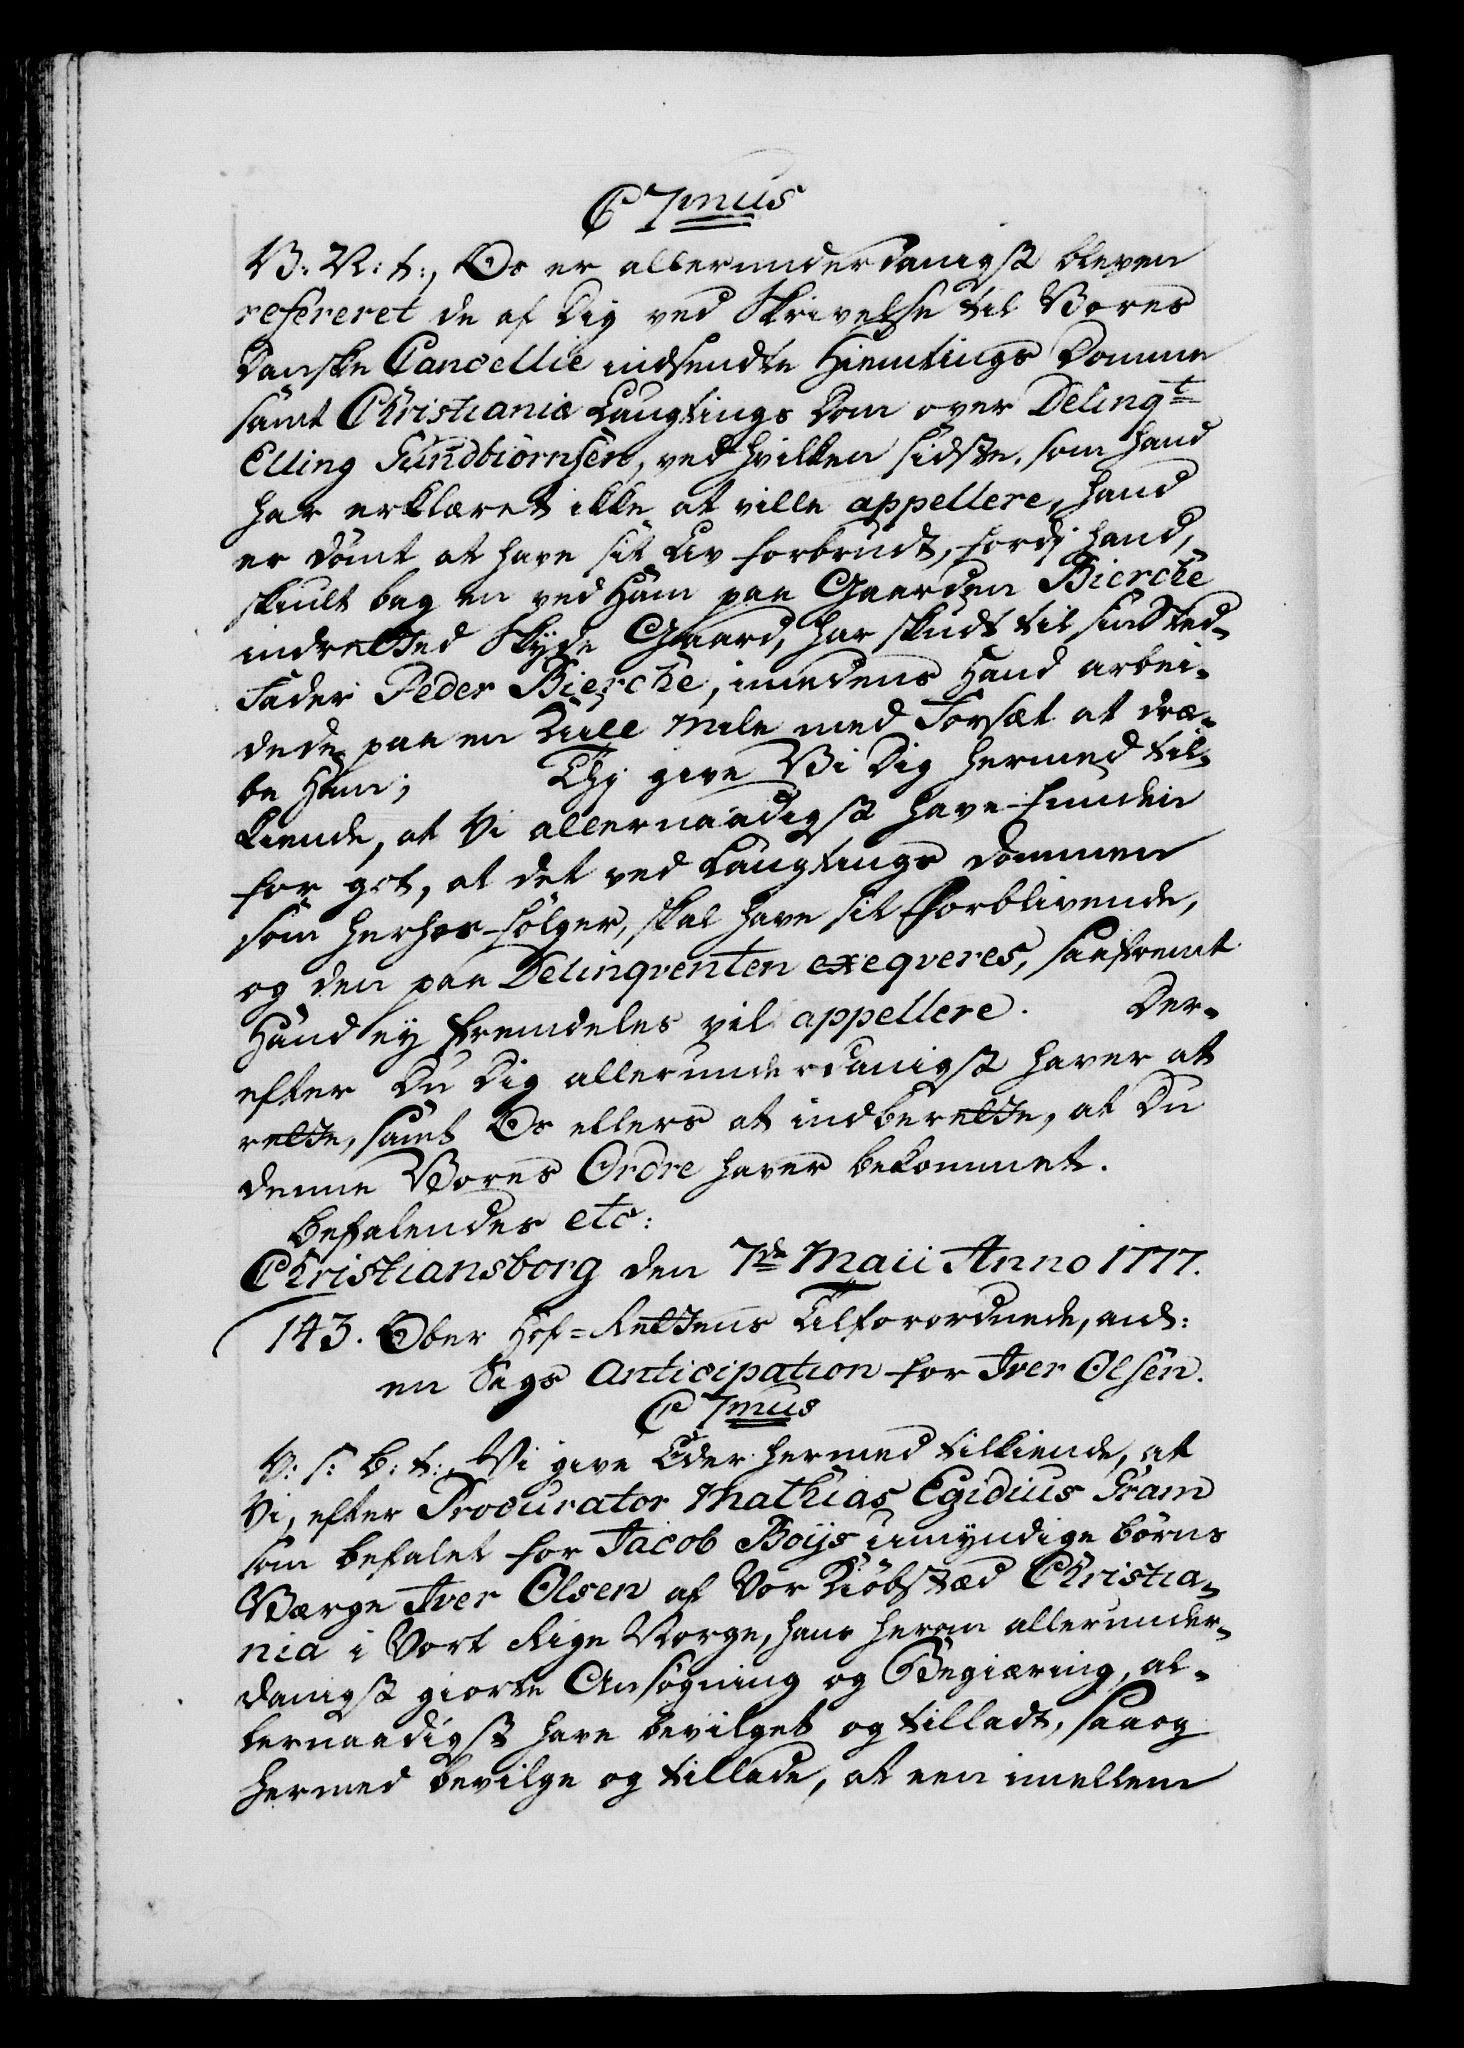 C 7mus
V: V: t:, Os er allerunderdanigst bleven
refereret de af Dig ved Skrivelse til Vores
Danske Cancellie indsendte Hiemtings Domme
samt Christiania Laugtings Dom over Delinqt
Elling Gundbiørnsen, ved hvilken sidste, som hand
har erklæret ikke at ville appellere, hand
er dømt at have sit Liv forbrudt, fordj hand,
skiult bag en ved Ham paa Gaarden Bierche
indretted Skyde Gaard, har skudt til sin Sted-
Fader Peder Bierche, imedens Hand arbei-
dede paa en Kull Mile med Forsæt at dræ-
be Ham; Thj give Vi Dig hermed til-
kiende, at Vi allernaadigst have funden
for got, at det ved Laugtings Dommen
som herhos følger, skal have sit Forblivende,
og den paa Delinqventen exeqveres, saafremt
Hand ey fremdeles vil appellere. Der-
efter Du Dig allerunderdanigst haver at
rette, samt Os ellers at indberette, at Du
denne Vores Ordre haver bekommet.
Befalendes etc:
Christiansborg den 7de Maii Anno 1777.
143. Ober Hof-Rettens Tilforordnede, anl:
en Sags Anticipation for Iver Olsen.
C 7mus
V: s: B: t:, Vi give Eder hermed tilkiende, at
Vi, efter Procurator Mathias Egidius Gram
som befalet for Jacob Boijs umyndige Børns
Værge Iver Olsen af Vor Kiøbstæd Christia-
nia i Vort Rige Norge, hans herom allerunder-
danigst giorte Ansøgning og Begiæring, al-
lernaadigst have bevilget og tilladt, saa og
hermed bevilge og tillade, at een imellem